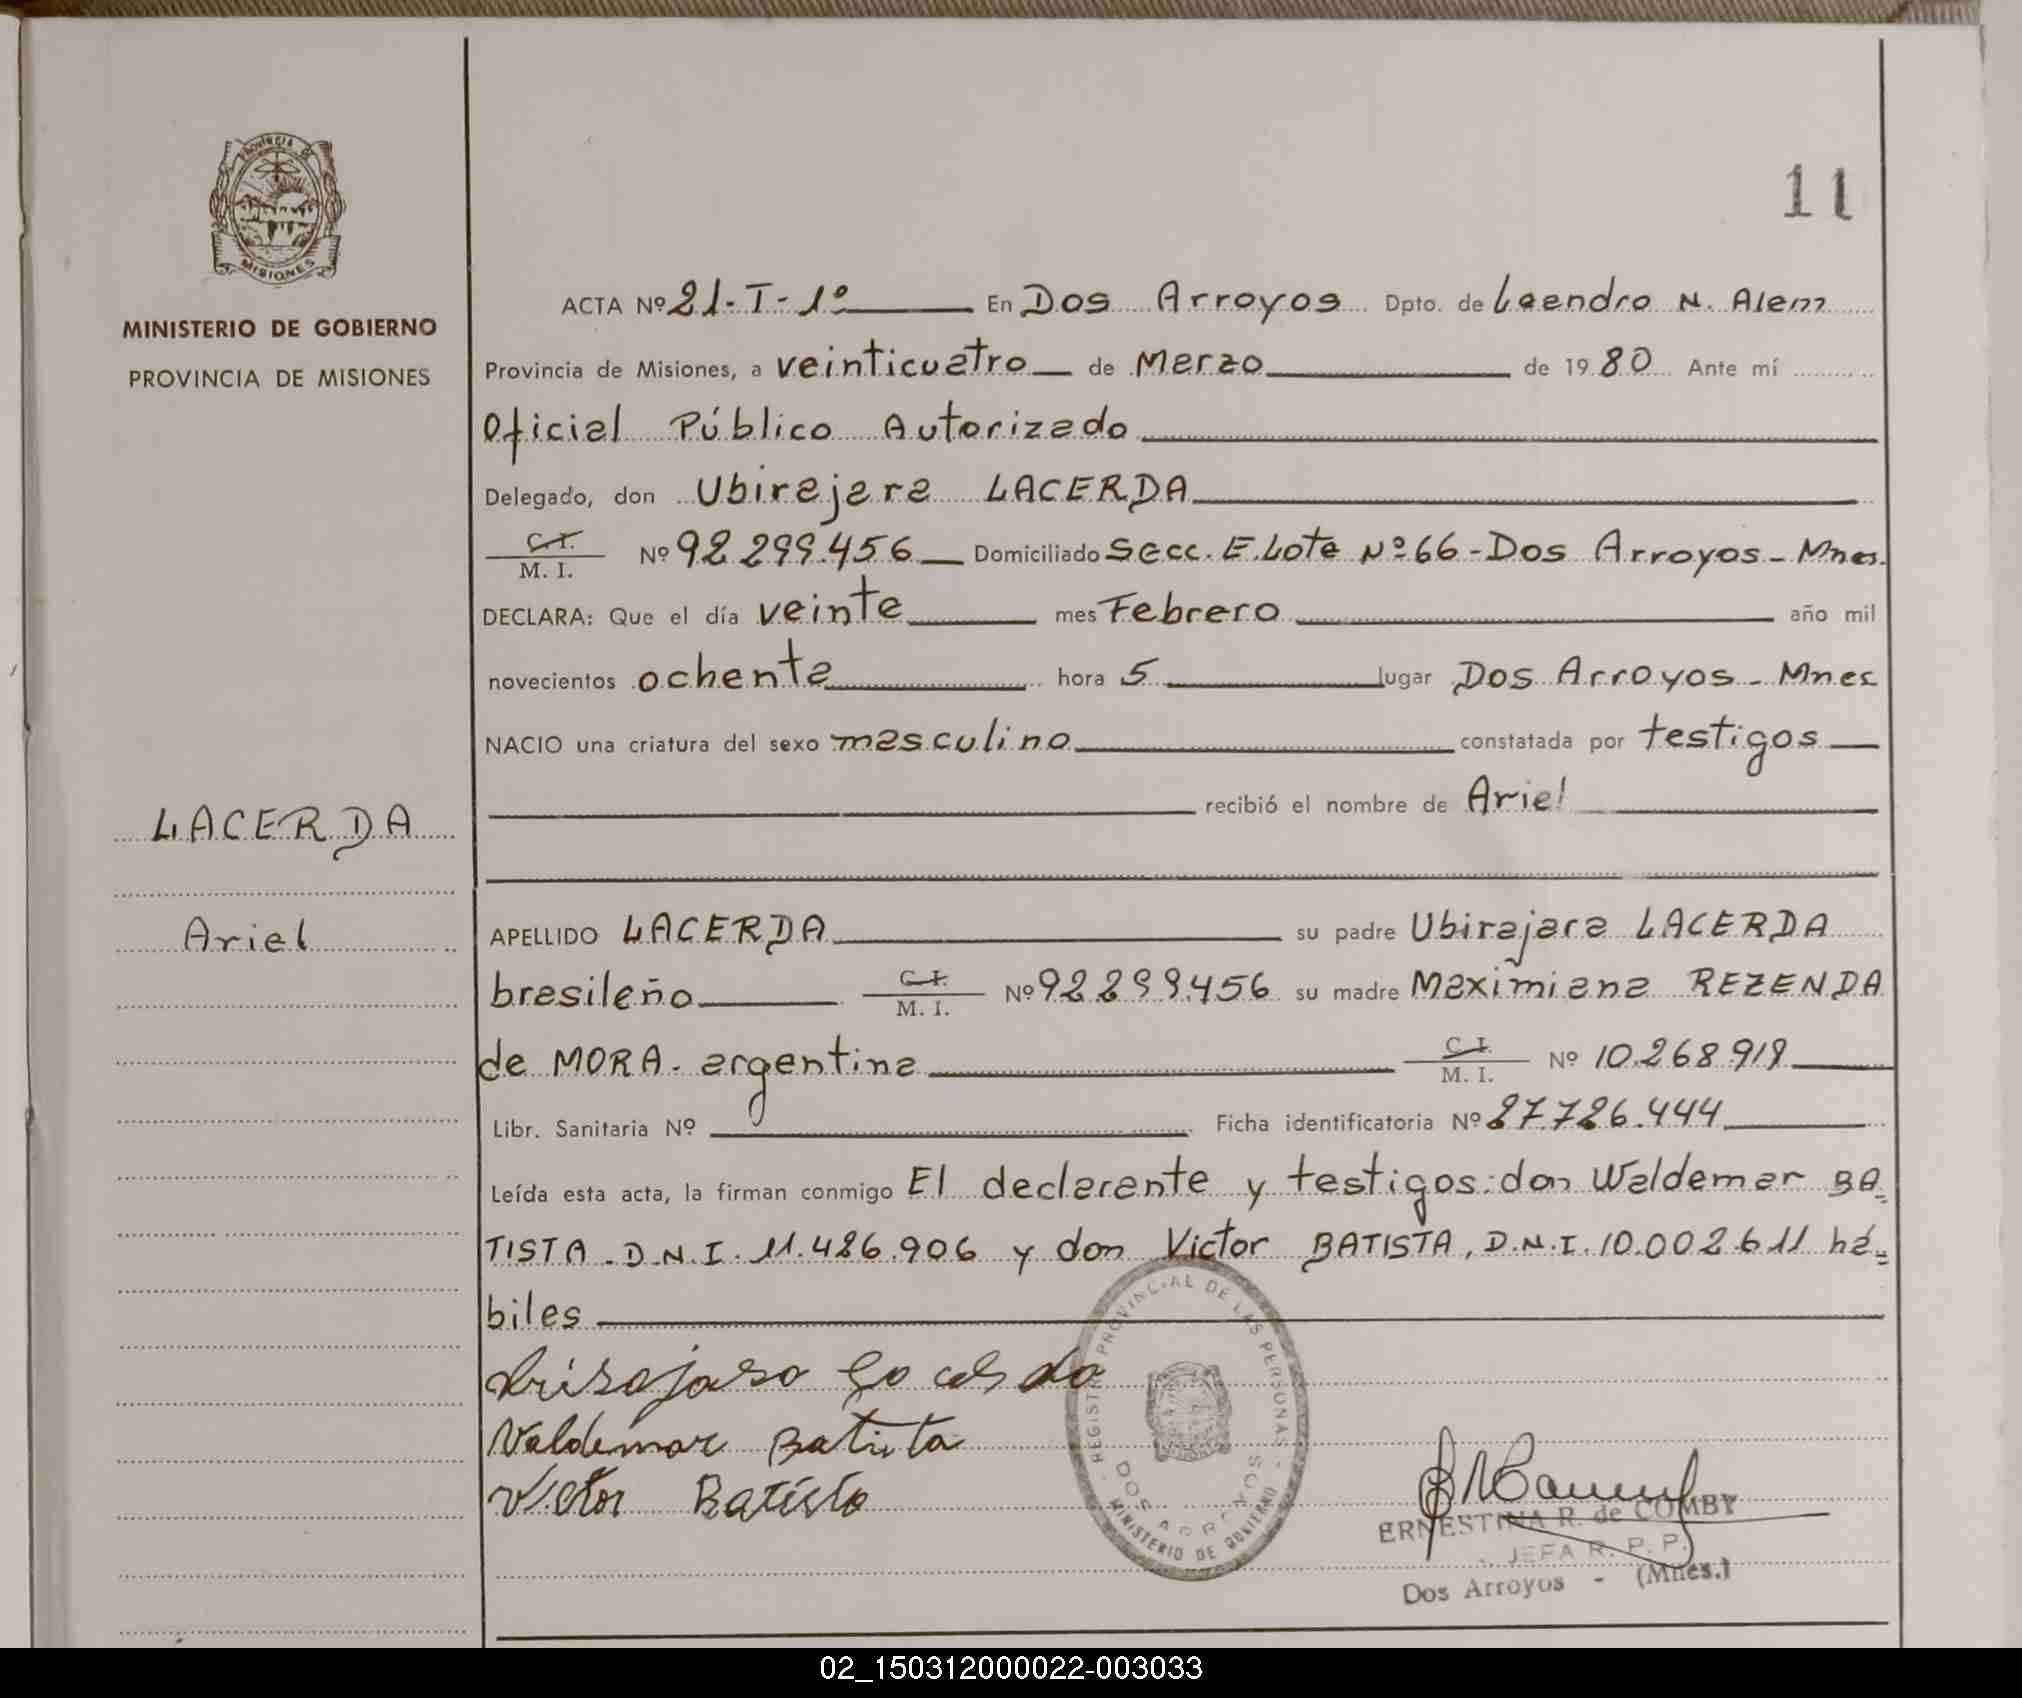 PROVINCIA DE
MISIONES
MINISTERIO DE GOBIERNO
PROVINCIA DE MISIONES
LACERDA
Ariel
11
ACTA Nº 21-I-1º En Dos Arroyos Dpto. de Leandro N. Alem
Provincia de Misiones, a veinticuatro de Marzo de 1980 Ante mí
Oficial Público Autorizado
Delegado, don Ubirajara LACERDA
C.I.
M. I. Nº 92.299.456 Domiciliado Secc. E. Lote Nº 66 - Dos Arroyos - Mnes.
DECLARA: Que el día veinte mes Febrero año mil
novecientos ochenta hora 5 lugar Dos Arroyos - Mnes
NACIO una criatura del sexo masculino constatada por testigos
recibió el nombre de Ariel
APELLIDO LACERDA su padre Ubirajara LACERDA
brasileño C.I.
M. I. Nº 92.299.456 su madre Maximiana REZENDA
de MORA. argentina C.I.
M. I. Nº 10.268.919
Libr. Sanitaria Nº Ficha identificatoria Nº 27.726.444
Leída esta acta, la firman conmigo El declarante y testigos: don Waldemar BA=
TISTA. D.N.I. 11.426.906 y don Victor BATISTA, D.N.I. 10.002.611 há=
biles
Valdemar Batista
Victor Batista
REGISTRO PROVINCIAL DE LAS PERSONAS
DOS ARROYOS
MINISTERIO DE GOBIERNO
ERNESTINA R. de COMBY
JEFA R. P. P.
Dos Arroyos - (Mnes.)
02_150312000022-003033